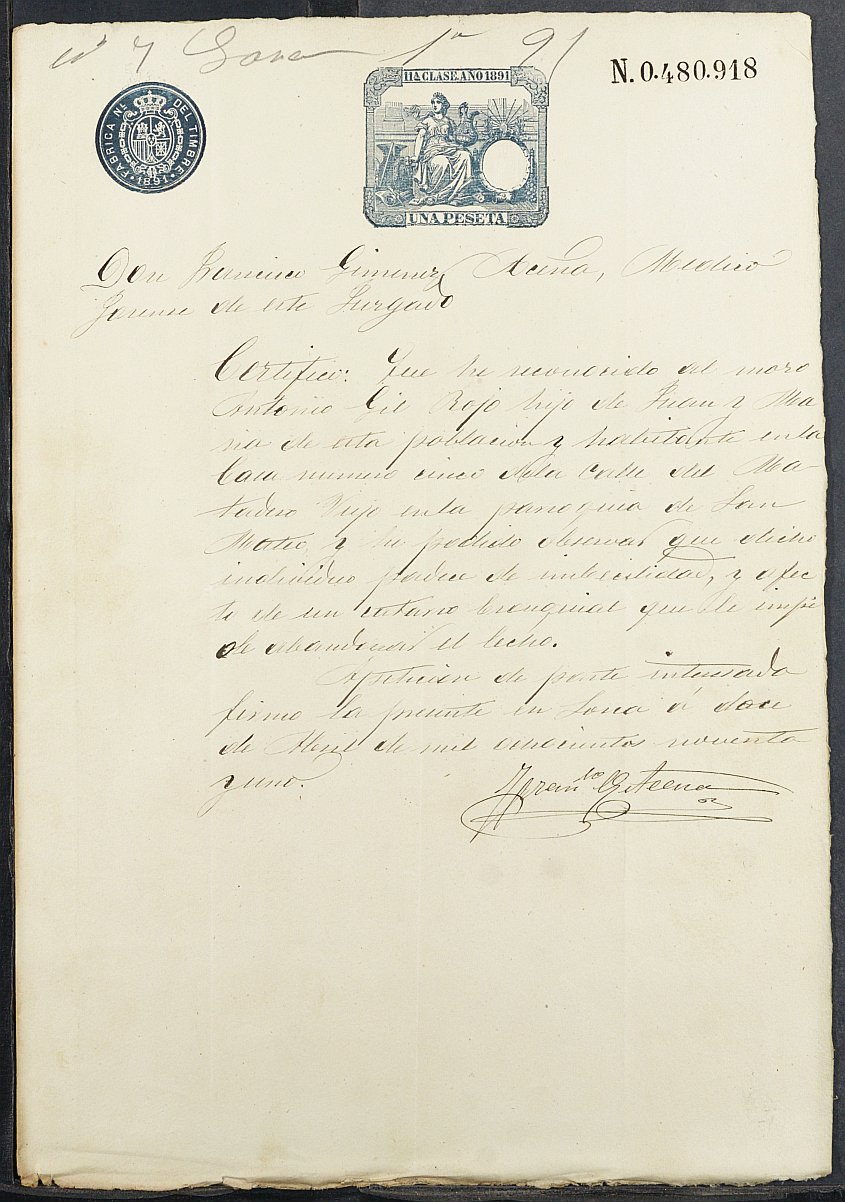 nº 7 Soria 1º 91
N. 0.480.918
FABRICA Nᴸ DEL TIMBRE
1891
11ª CLASE. AÑO 1891
UNA PESETA
Don Francisco Gimenez Aceña, Medico
forense de este Juzgado
Certifico: Que he reconocido al mozo
Antonio Gil Rojo hijo de Juan y Ma
ria de esta poblacion y habitante en la
Casa numero cinco dela Calle del Ma-
tadero Viejo enla parroquia de San
Mateo y he podido observar que dicho
individuo padece de imbecilidad, y afec
to de un catarro bronquial que le impi
de abandonar el lecho.
Apeticion de parte interesada
firmo la presente en Soria á doce
de Abril de mil ochocientos noventa
y uno.
Franᶜᵒ G. Aceña